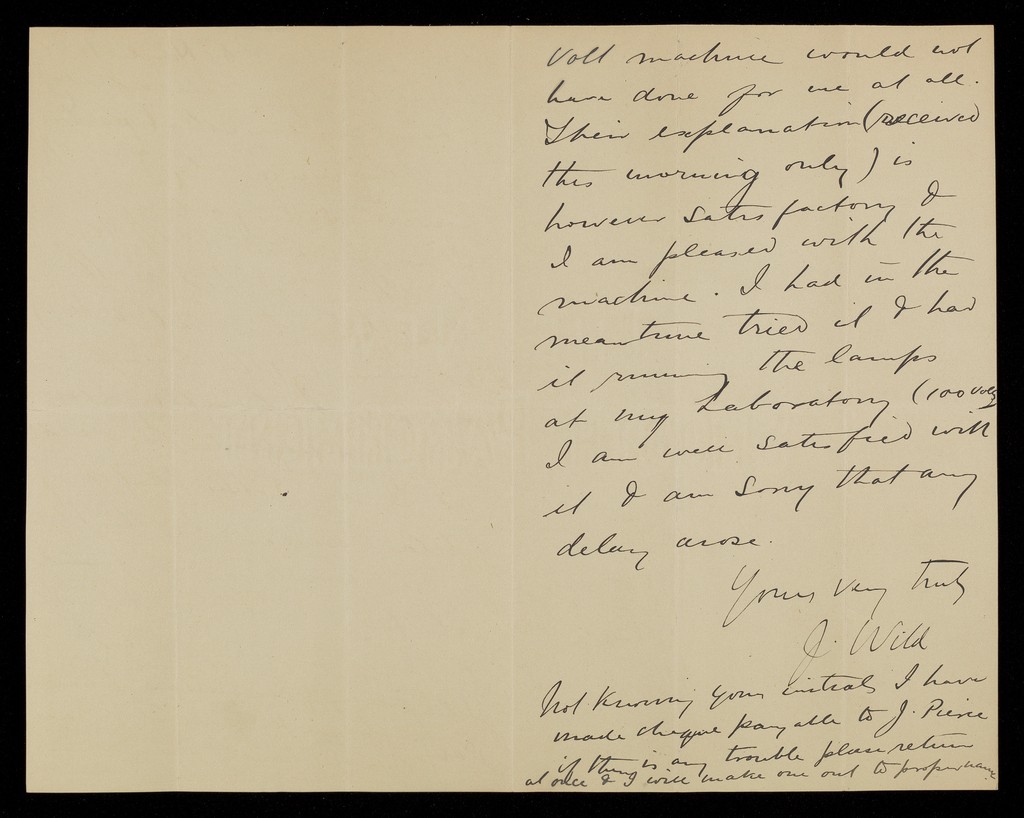 Volt machine would not
have done for me at all.
Their explanation (received
this morning only) is
however satisfactory &
I am pleased with the
machine. I had in the
meantime tried it & had
it running the lamps
at my Laboratory (100 volts
I am well satisfied with
it & am sorry that any
delay arose.
Yours very truly
J. Wild
Not knowing your initials I have
made cheque payable to J. Pierce
if there is any trouble please return
at once & I will make one out to proper name